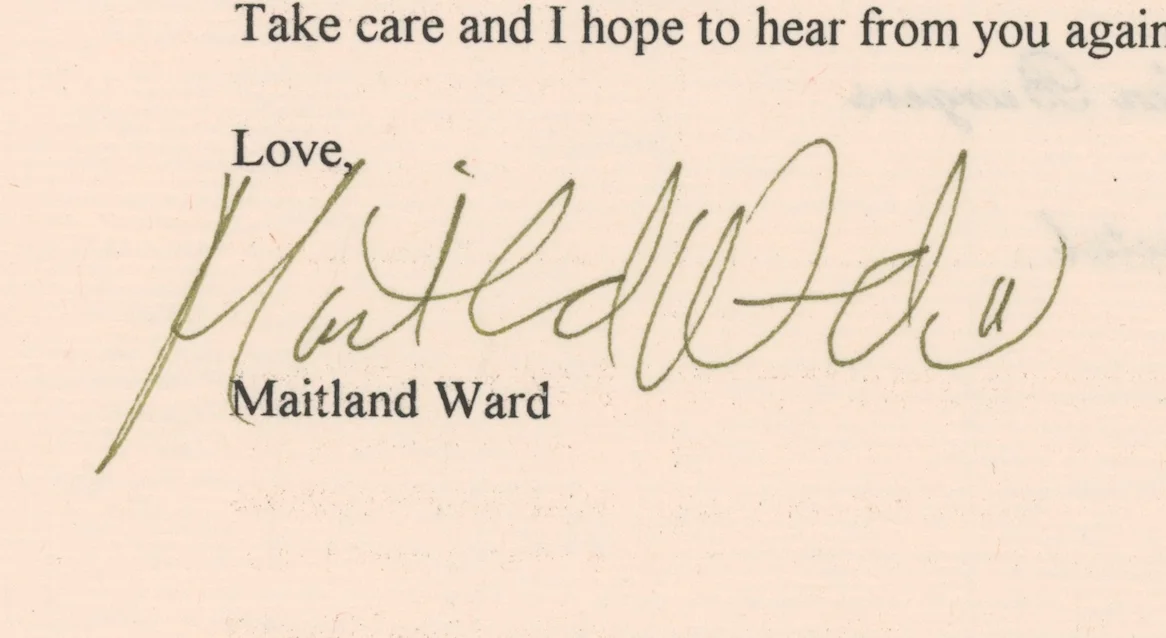 Take care and I hope to hear from you again
Love,
Maitland Ward
Maitland Ward